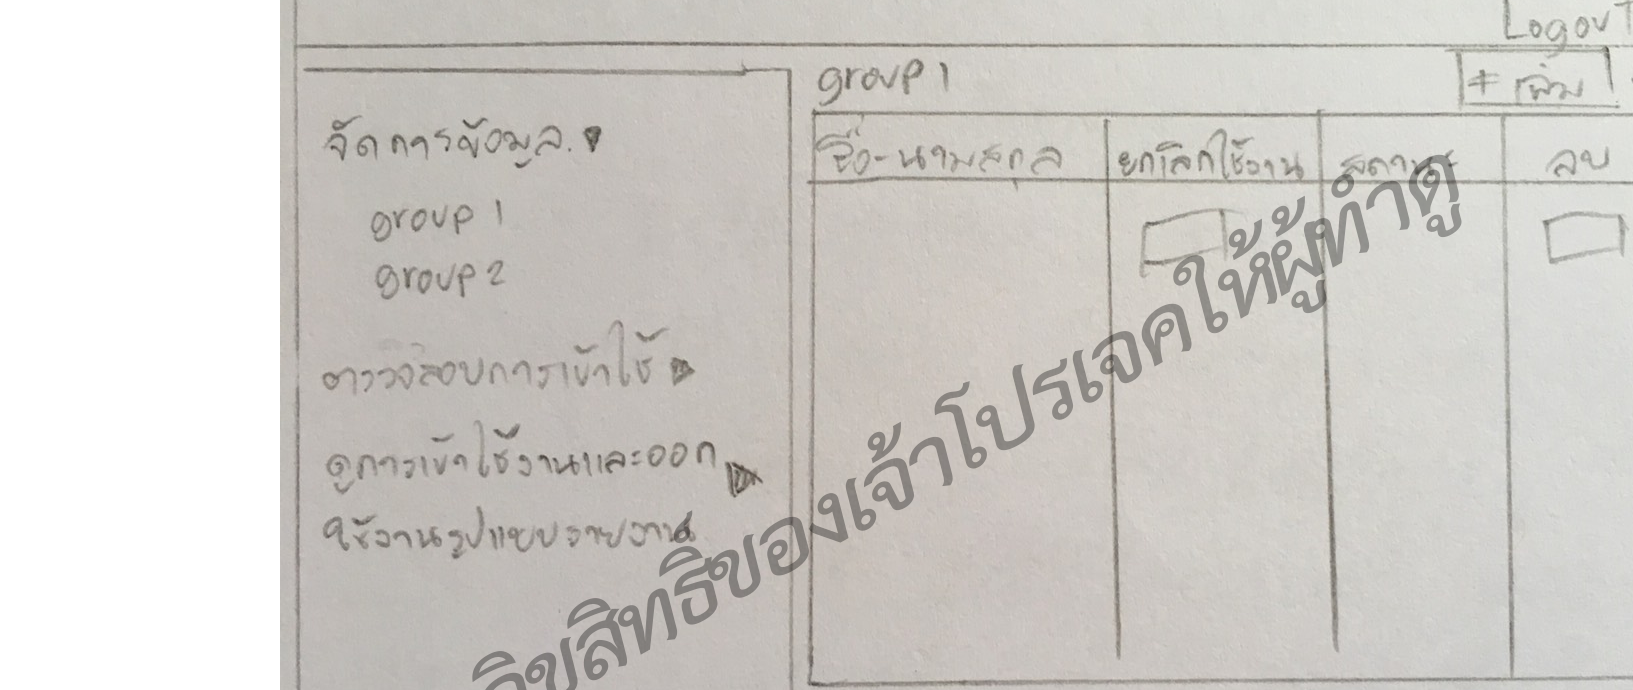 Logout
group 1
+ เพิ่ม
จัดการข้อมูล.
group 1
group 2
ตรวจสอบการเข้าใช้
ดูการเข้าใช้งานและออก
ใช้งานรูปแบบรายงาน
ชื่อ-นามสกุล
ยกเลิกใช้งาน
สถานะ
ลบ
ลิขสิทธิ์ของเจ้าโปรเจคให้ผู้ทำดู